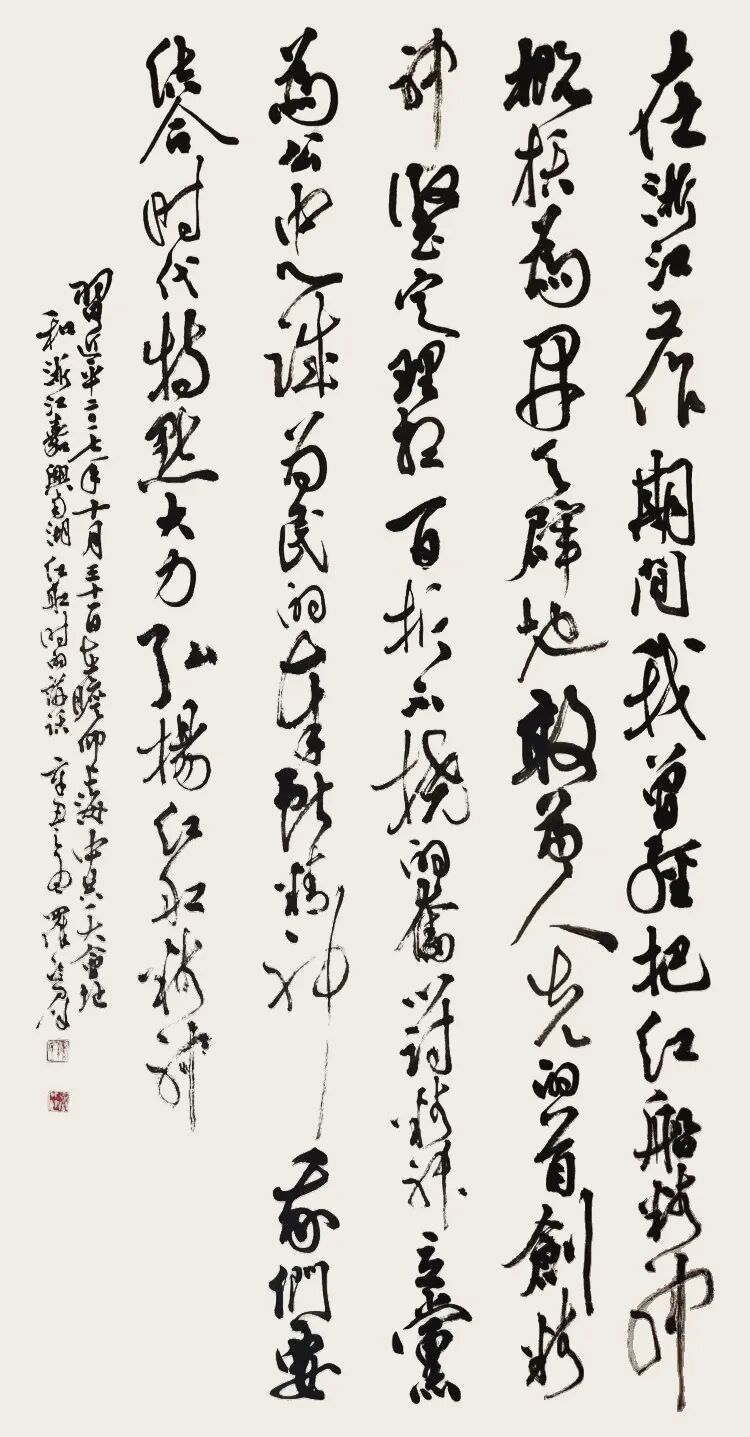 在浙江工作期間我曾經把红船精神
概括為開天辟地敢為人先的首創精
神堅定理想百折不撓的奮鬥精神立黨
為公忠誠為民的奉献精神我們要
结合时代特點大力弘揚红船精神
習近平二〇一七年十月三十一日在瞻仰上海中共一大會址
和浙江嘉興南湖红船时的講话 辛丑之 羅